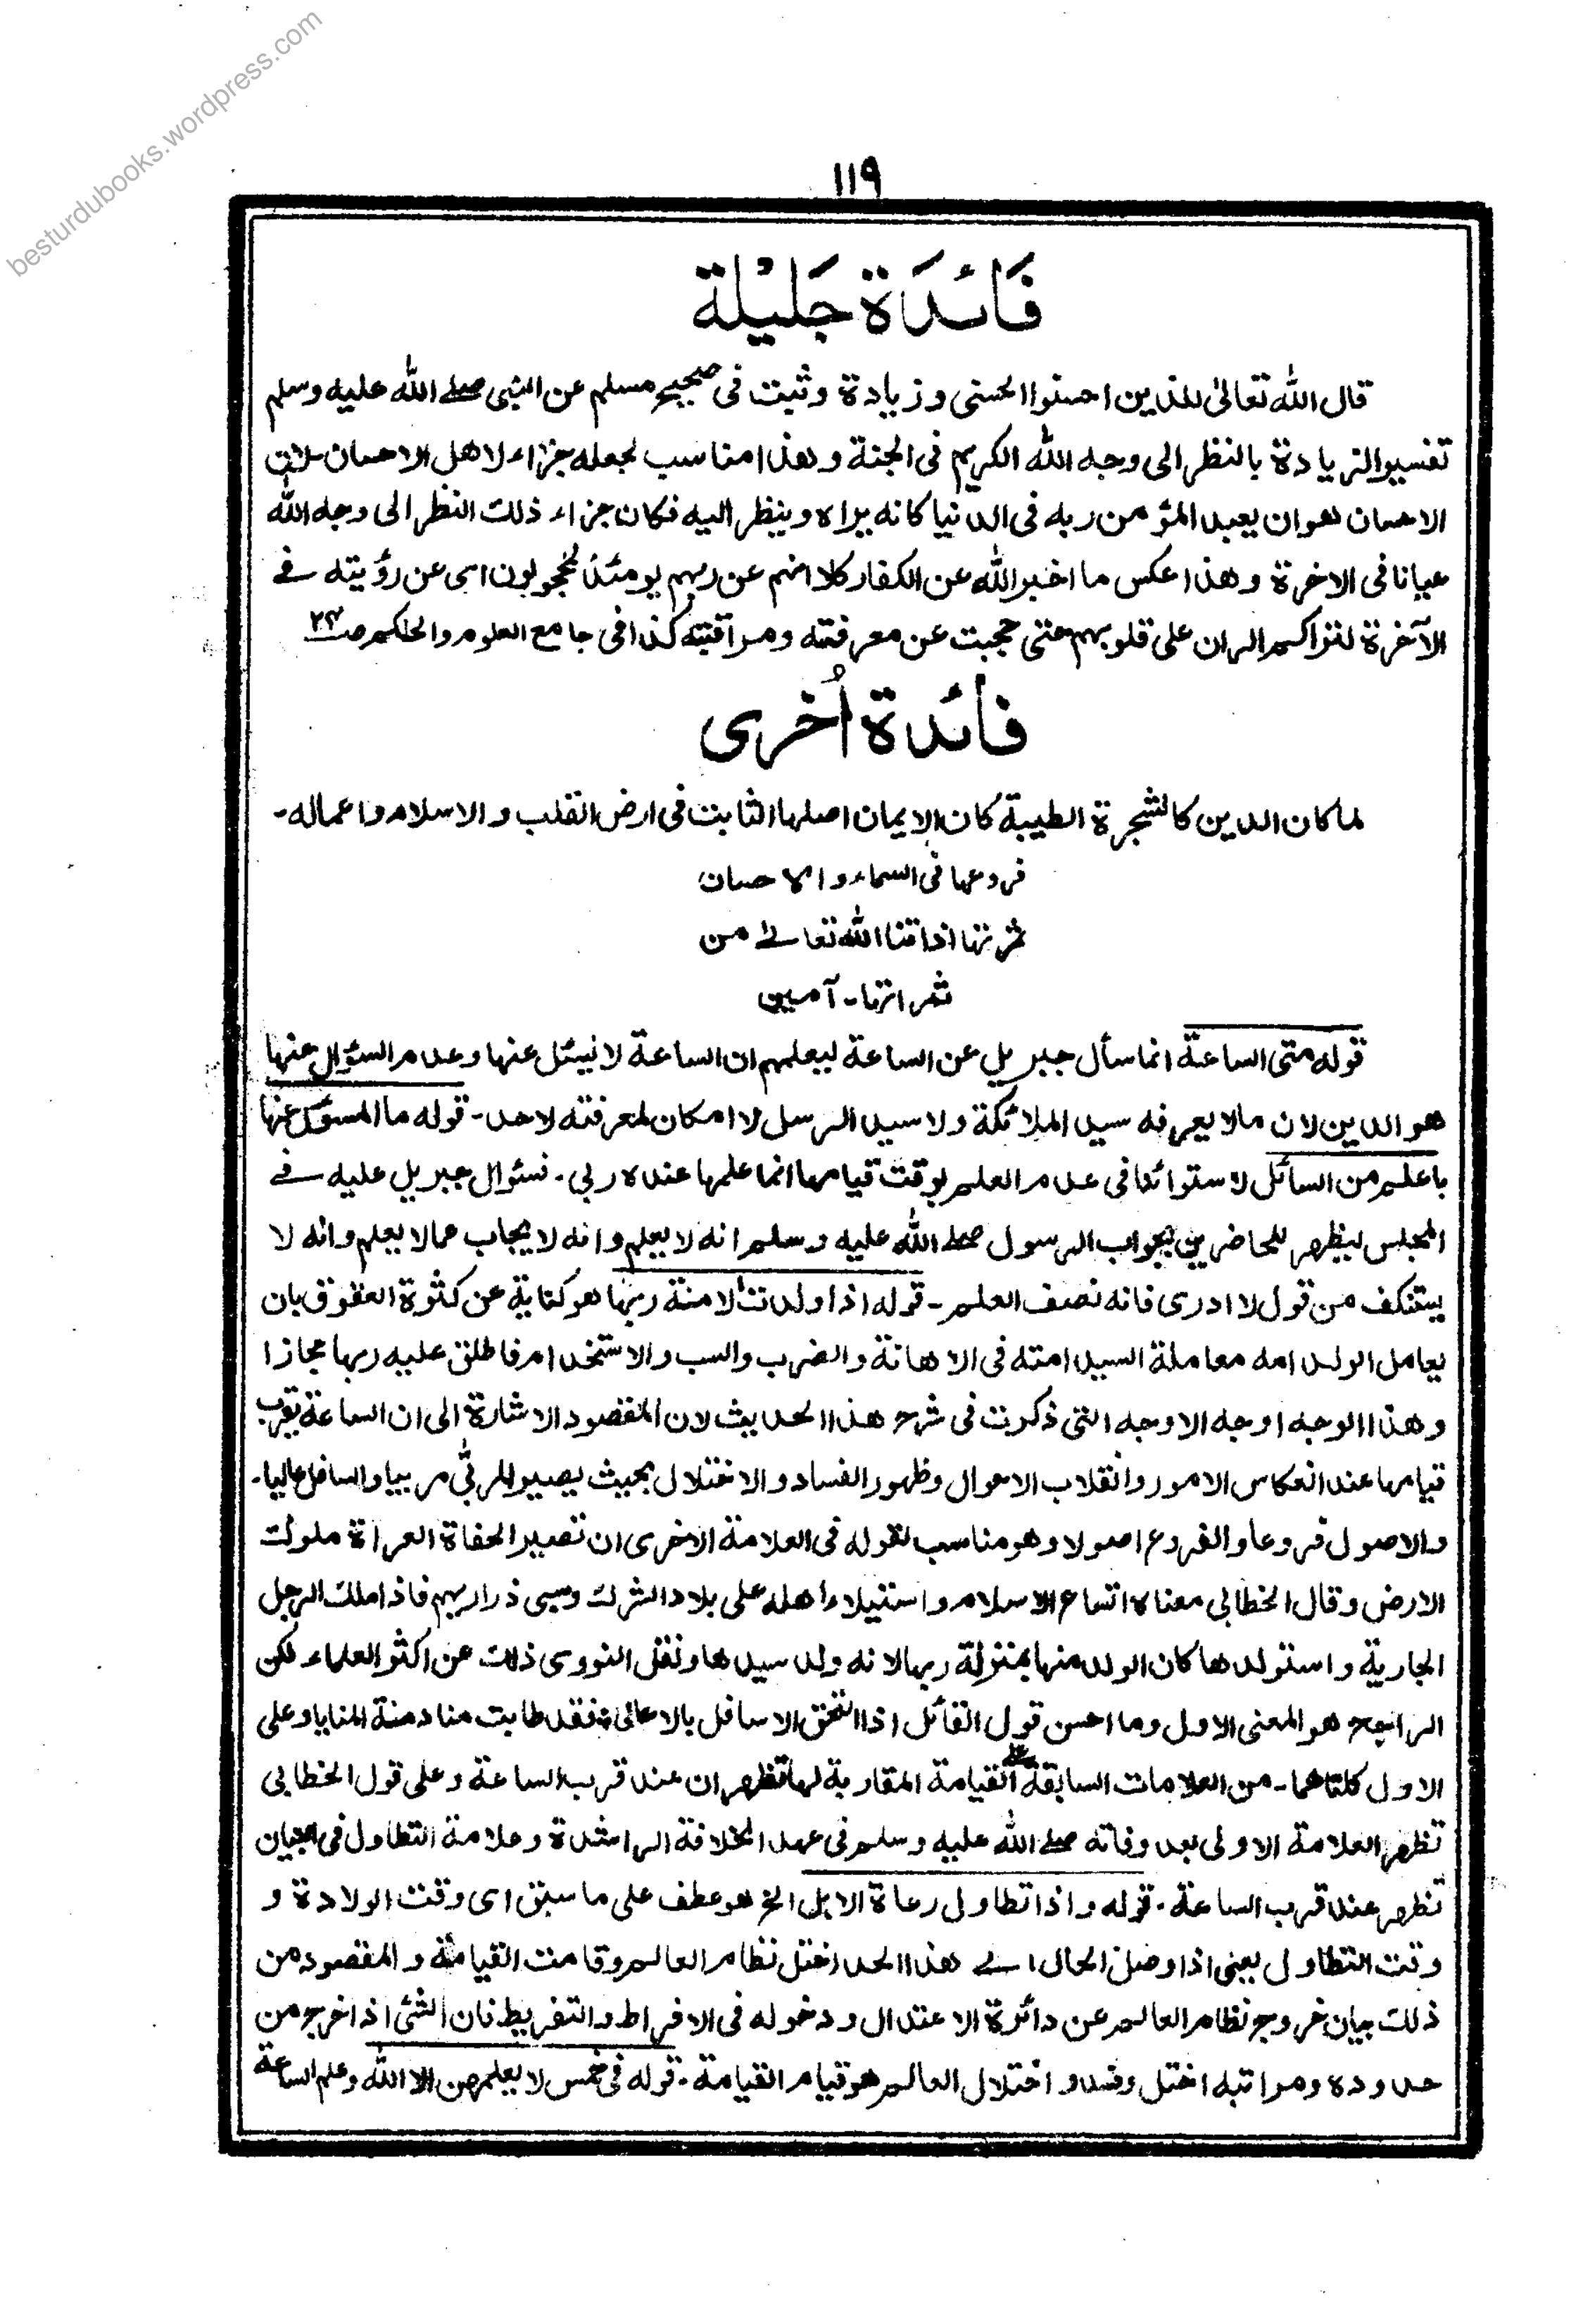 besturdubooks.wordpress.com
١١٩
فَائدَة جَلِيْلة
قال الله تعالىٰ للذين احسنوا الحسنى وزيادة وثبت فى صحيح مسلم عن النبى صلے الله عليه وسلم
تفسير الزيادة بالنظر الى وجه الله الكريم فى الجنة وهذا مناسب لجعله جزاء لاهل الاحسان لان
الاحسان هو ان يعبد المؤمن ربه فى الدنيا كانه يراه وينظر اليه فكان جزاء ذلك النظر الى وجه الله
عيانا فى الاخرة وهذا عكس ما اخبر الله عن الكفار كلا انهم عن ربهم يومئذ لمحجوبون اى عن رؤيته فے
الآخرة لتراكم الران على قلوبهم حتى حجبت عن معرفته ومراقبته كذا فى جامع العلوم والحكم صـ٢٣
فائدة اُخرى
لما كان الدين كالشجرة الطيبة كان الايمان اصلها الثابت فى ارض القلب والاسلام واعماله۔
فروعها فى السماء والاحسان
ثمرتها اذاقنا الله تعالےٰ من
ثمراتها۔ آمين
قوله متى الساعة انما سأل جبريل عن الساعة ليعلمهم ان الساعة لا يسئل عنها وعدم السؤال عنها
هو الدين لان مالا يعرفه سيد الملائكة ولا سيد الرسل لا امكان لمعرفته لاحد۔ قوله ما المسؤل عنها
باعلم من السائل لاستوائنا فى عدم العلم بوقت قيامها انما علمها عند ربي۔ فسئوال جبريل عليه فے
المجلس ليظهر للحاضرين بجواب الرسول صلے الله عليه وسلم انه لا يعلم وانه لا يجاب عما لا يعلم وانه لا
يستنكف من قول لا ادرى فانه نصف العلم۔ قوله اذا ولدت الامة ربها هو كناية عن كثرة العقوق بان
يعامل الولد امه معاملة السيد امته فى الاهانة والضرب والسب والاستخدام فاطلق عليه ربها مجازا
وهذا الوجه اوجه الاوجه التى ذكرت فى شرح هذا الحديث لان المقصود الاشارة الى ان الساعة يقرب
قيامها عند انعكاس الامور وانقلاب الاحوال وظهور الفساد والاختلال بحيث يصير المربّي مربيا والسافل عاليا۔
والاصول فروعا والفروع اصولا وهو مناسب لقوله فى العلامة الاخرى ان تصير الحفاة العراة ملوك
الارض وقال الخطابي معناه اتساع الاسلام واستيلاء اهله على بلاد الشرك وسبى ذراريهم فاذا ملك الرجل
الجارية واستولدها كان الولد منها بمنزلة ربها لانه ولد سيدها ونقل النووى ذلك عن اكثر العلماء لكن
الراجح هو المعنى الاول وما احسن قول القائل اذا التحق الاسافل بالاعالى ؛ فقد طابت منادمة المنايا وعلى
الاول كلتاهما۔ من العلامات السابقة على القيامة المقاربة لها تظهران عند قرب الساعة وعلى قول الخطابى
تظهر العلامة الاولى بعد وفاته صلے الله عليه وسلم فى عهد الخلافة الراشدة وعلامة التطاول فى البنيان
تظهر عند قرب الساعة۔ قوله واذا تطاول رعاة الابل الخ هو عطف على ما سبق اى وقت الولادة و
وقت التطاول يعنى اذا وصل الحال الے هذا الحد اختل نظام العالم وقامت القيامة والمقصود من
ذلك بيان خروج نظام العالم عن دائرة الاعتدال ودخوله فى الافراط والتفريط فان الشئ اذا خرج من
حدوده ومراتبه اختل وفسد واختلال العالم هو قيام القيامة۔ قوله فى خمس لا يعلمهن الا الله وعلم الساعة